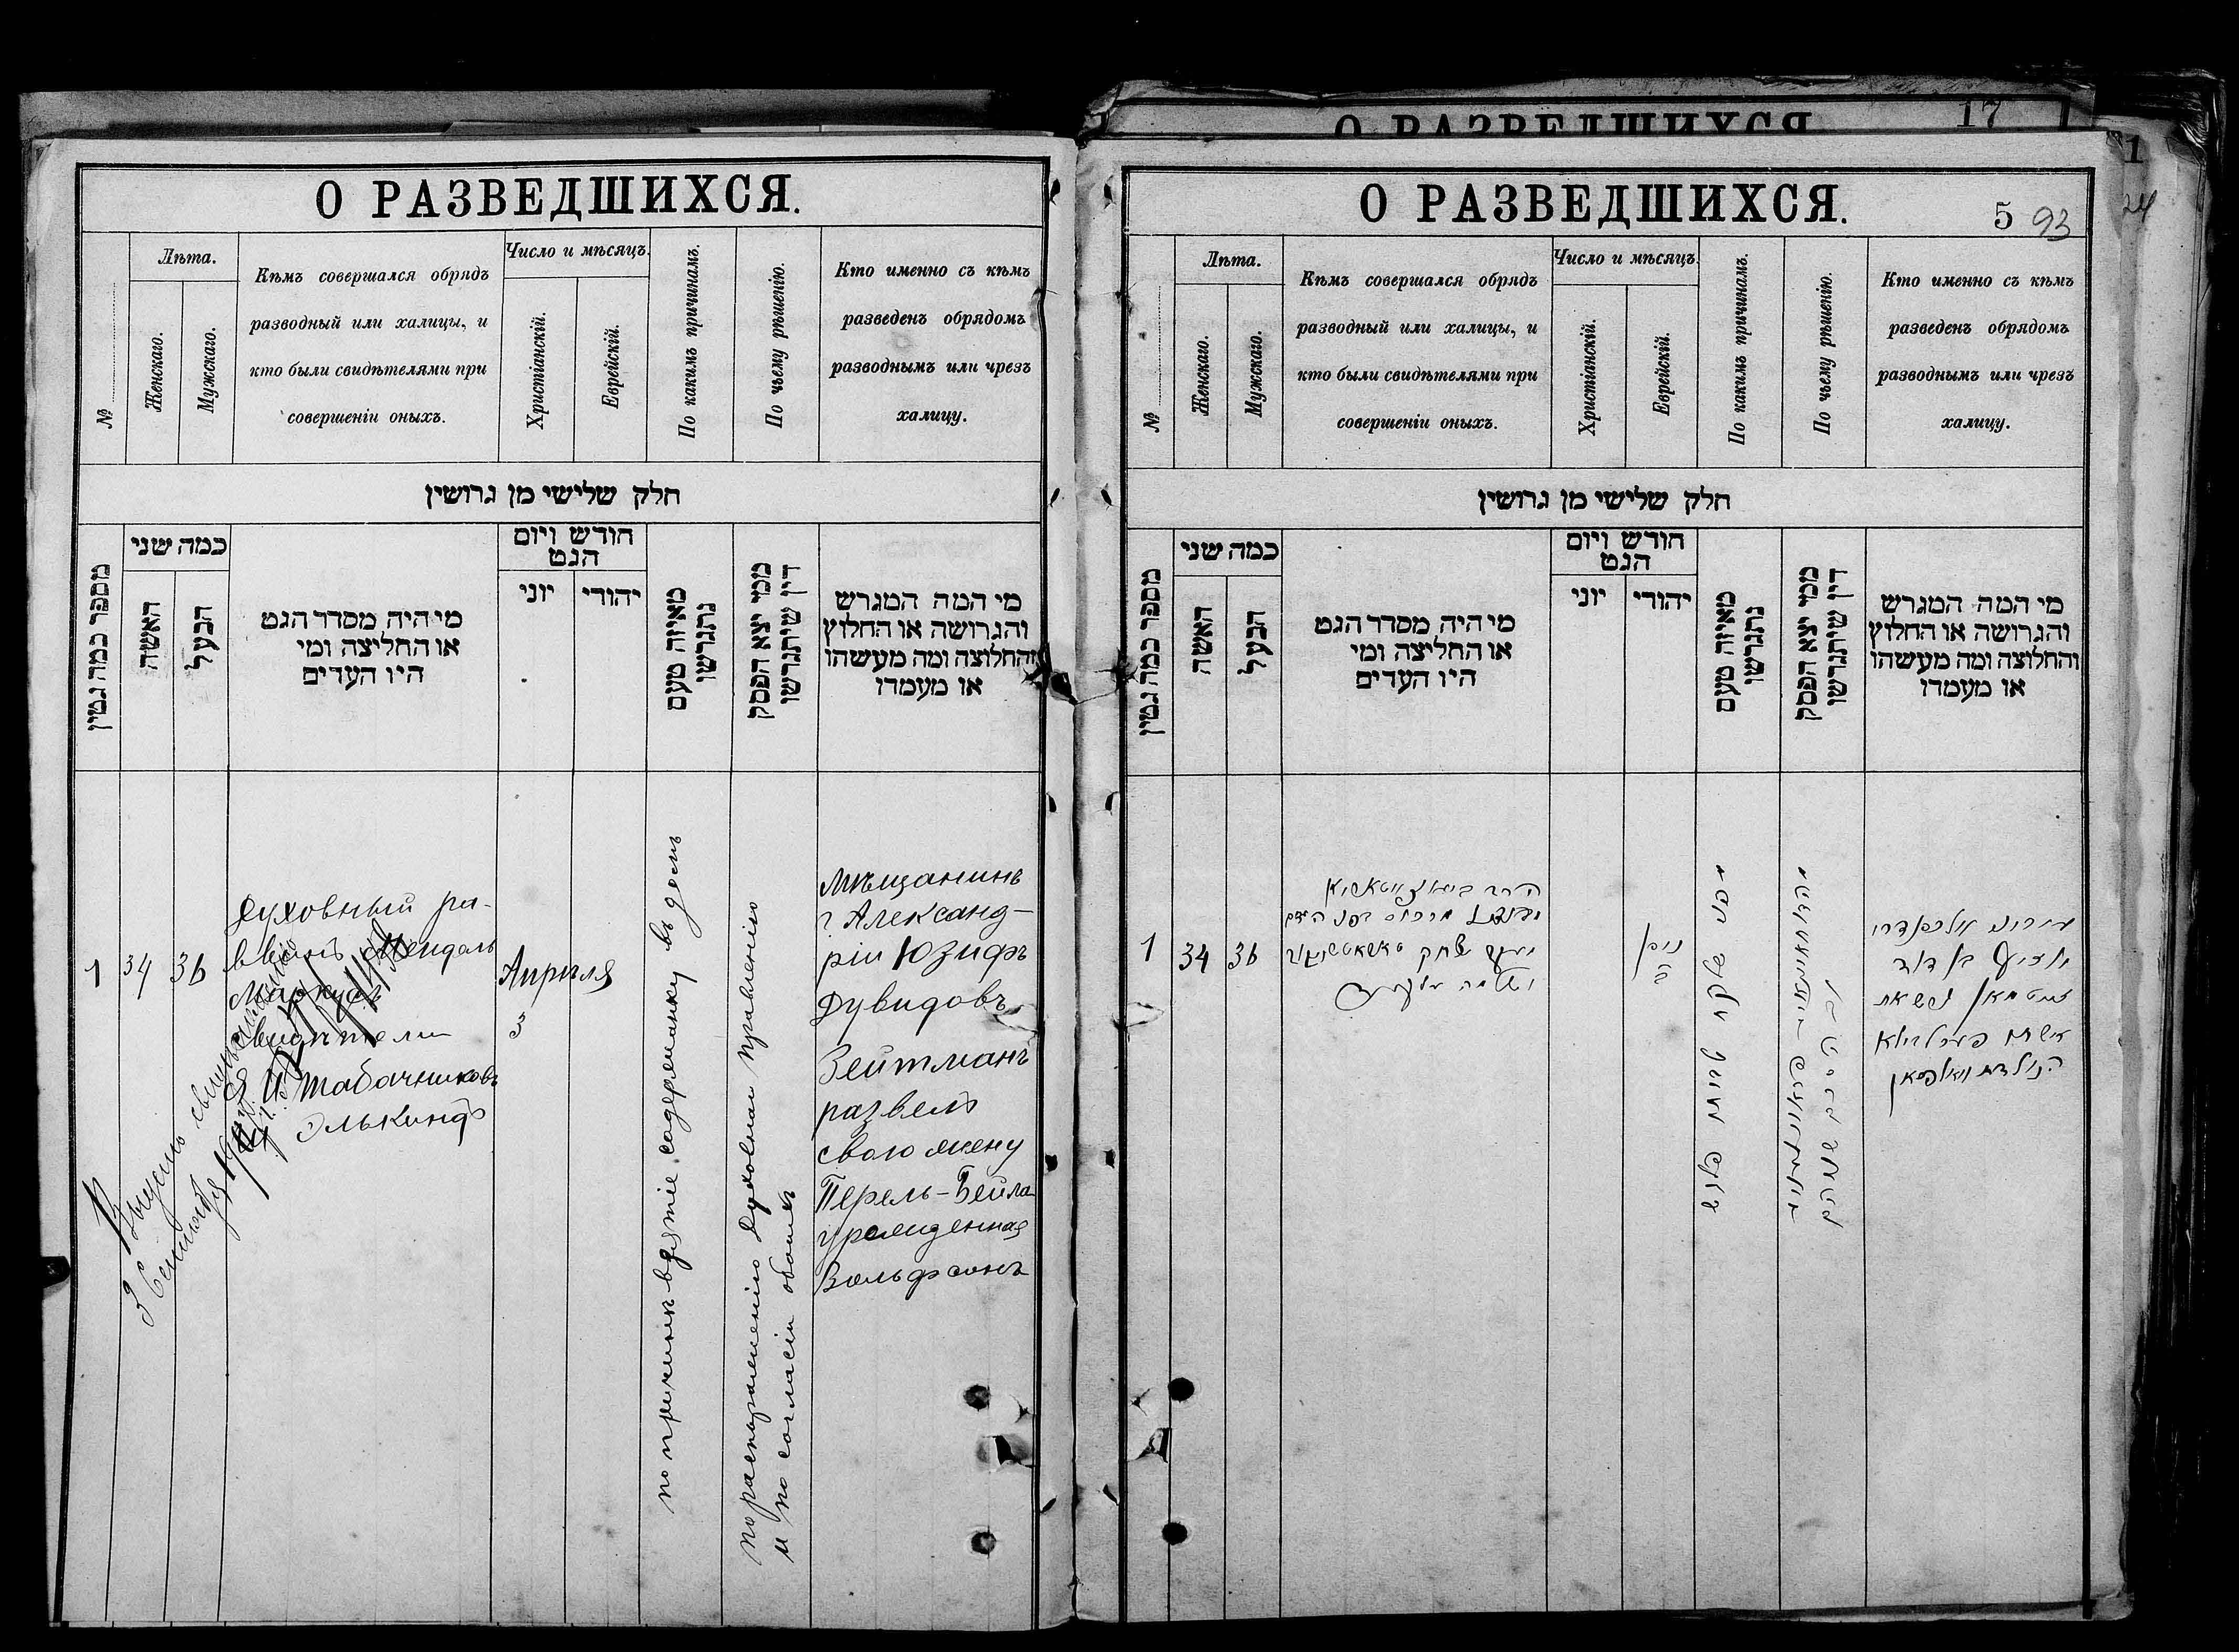 О РАЗВЕДШИХСЯ.
№
Лѣта.
Женскаго.
Мужскаго.
Кѣмъ совершался обрядъ
разводный или халицы, и
кто были свидѣтелями при
совершеніи оныхъ.
Число и мѣсяцъ.
Христіанскій.
Еврейскій.
По какимъ причинамъ.
По чьему рѣшенію.
Кто именно съ кѣмъ
разведенъ обрядомъ
разводнымъ или чрезъ
халицу.
חלק שלישי מן גרושין
מספר כמה גטין
כמה שני
האשה
הבעל
מי היה מסדר הגט
או החליצה ומי
היו העדים
חודש ויום
הגט
יוני
יהודי
מאיזה טעם
נתגרשו
ממי יצא הפסק
דין שיתגרשו
מי המה המגרש
והגרושה או החלוץ
והחלוצה ומה מעשהו
או מעמדו
1
34
36
Духовный ра-
ввинъ Мендель
Маркусъ
свидѣтели
И. Табачниковъ
Элькиндъ
Апрѣля
3
по причинѣ взятіе содержанку въ домъ
по распоряженію Духовнаи правленію
и по согласіи обоихъ
Мѣщанинъ
г. Александ-
ріи Юзифъ
Дувидовъ
Зейтманъ
развелъ
свою жену
Перель-Бейла
урожденная
Вольфсонъ
О РАЗВЕДШИХСЯ
17
1
24
О РАЗВЕДШИХСЯ.
5 93
№
Лѣта.
Женскаго.
Мужскаго.
Кѣмъ совершался обрядъ
разводный или халицы, и
кто были свидѣтелями при
совершеніи оныхъ.
Число и мѣсяцъ.
Христіанскій.
Еврейскій.
По какимъ причинамъ.
По чьему рѣшенію.
Кто именно съ кѣмъ
разведенъ обрядомъ
разводнымъ или чрезъ
халицу.
חלק שלישי מן גרושין
מספר כמה גטין
כמה שני
האשה
הבעל
מי היה מסדר הגט
או החליצה ומי
היו העדים
חודש ויום
הגט
יוני
יהודי
מאיזה טעם
נתגרשו
ממי יצא הפסק
דין שיתגרשו
מי המה המגרש
והגרושה או החלוץ
והחלוצה ומה מעשהו
או מעמדו
1
34
36
ניסן
ה
בן דוד